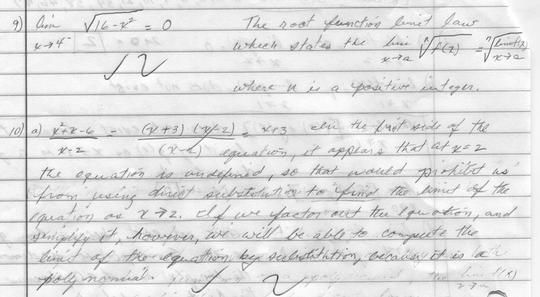 9) lim √16-x² = 0 The root function limit law
x→4⁻ which states the lim ⁿ√f(x) = ⁿ√lim f(x)
x→a x→a
where n is a positive integer.
10) a) x²+x-6 = (x+3)(x-2) = x+3 In the first side of the
x-2 (x-2) equation, it appears that at x=2
the equation is undefined, so that would prohibit us
from using direct substitution to find the limit of the
equation as x→2. If we factor out the equation, and
simplify it, however, we will be able to compute the
limit of the equation by substitution, because it is a
polynomial.